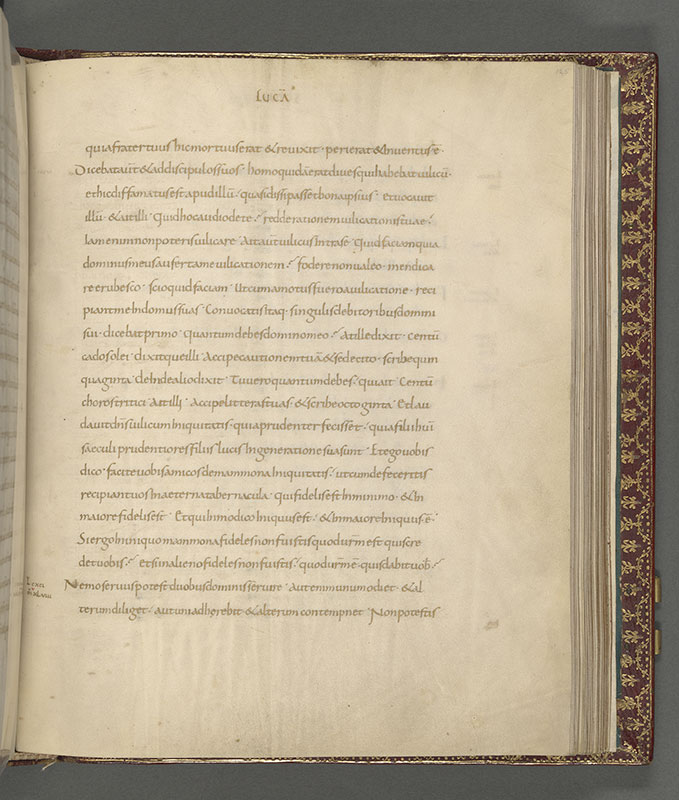 LUCĀ
quia frater tuus hic mortuus erat & revixit · perierat & Inventus ē ·
Dicebat autē & ad discipulos suos · homo quidā erat dives qui habebat vilicū ·
et hic diffamatus est apud illū · quasi dissipasset bona ipsius · et vocavit
illū · & ait illi · Quid hoc audio de te · redde rationem vilicationis tuae ·
Iam enim non poteris vilicare · Ait autē vilicus Intra se · Quid faciam quia
dominus meus aufert a me vilicationem · fodere non valeo · mendica
re erubesco · scio quid faciam · Ut cum amotus fuero a vilicatione · reci
piant me In domus suas · Convocatis itaq; singulis debitoribus domini
sui · dicebat primo · Quantum debes domino meo · At ille dixit · Centū
cados olei · dixitque illi · Accipe cautionem tuā & sede cito · scribe quin
quaginta · deInde alio dixit · Tu vero quantum debes · qui ait · Centū
choros tritici · Ait illi · Accipe litteras tuas · & scribe octoginta · Et lau
davit dn̄s vilicum Iniquitatis · quia prudenter fecisset · quia filii huiꝰ
saeculi prudentiores filiis lucis In generatione sua sunt · Et ego vobis
dico · facite vobis amicos de mammona Iniquitatis · ut cum defeceritis
recipiant vos In aeterna tabernacula · qui fidelis est In minimo · & In
maiore fidelis est · Et qui In modico Iniquus est · & In maiore Iniquus ē ·
Si ergo Iniquo mammona fideles non fuistis quod verum est quis cre
det vobis · et si In alieno fideles non fuistis · quod vrm̄ ē · quis dabit vob̄ ·
Nemo servus potest duobus dominis servire · Aut enim unum odiet · & al
terum diliget · aut uni adherebit & alterum contempnet · Non potestis